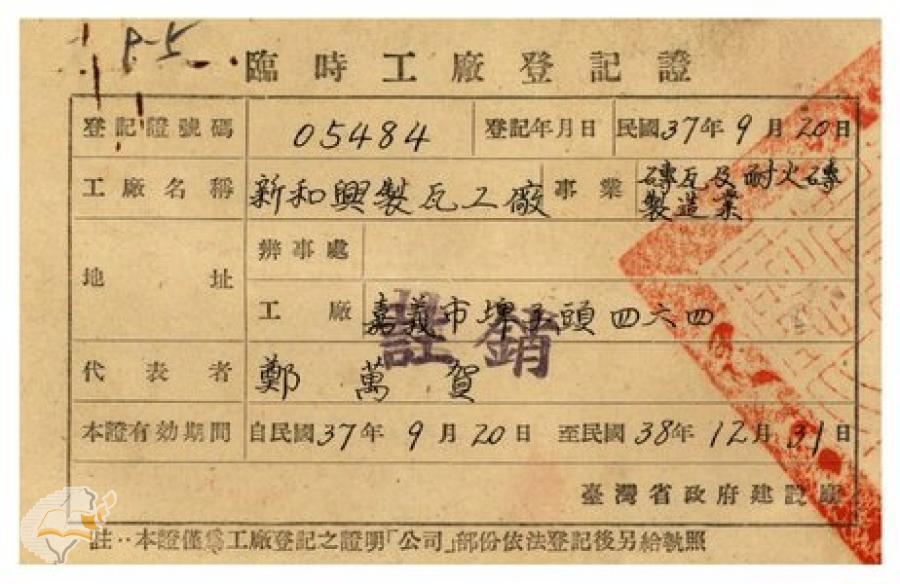 8-5
臨時工廠登記證
登記證號碼 05484 登記年月日 民國37年9月20日
工廠名稱 新和興製瓦工廠 事業 磚瓦及耐火磚製造業
地址 辦事處
工廠 嘉義市埤子頭四六四
註銷
代表者 鄭萬賀
本證有効期間 自民國37年9月20日 至民國38年12月31日
臺灣省政府建設廳
註：本證僅爲工廠登記之證明「公司」部份依法登記後另給執照